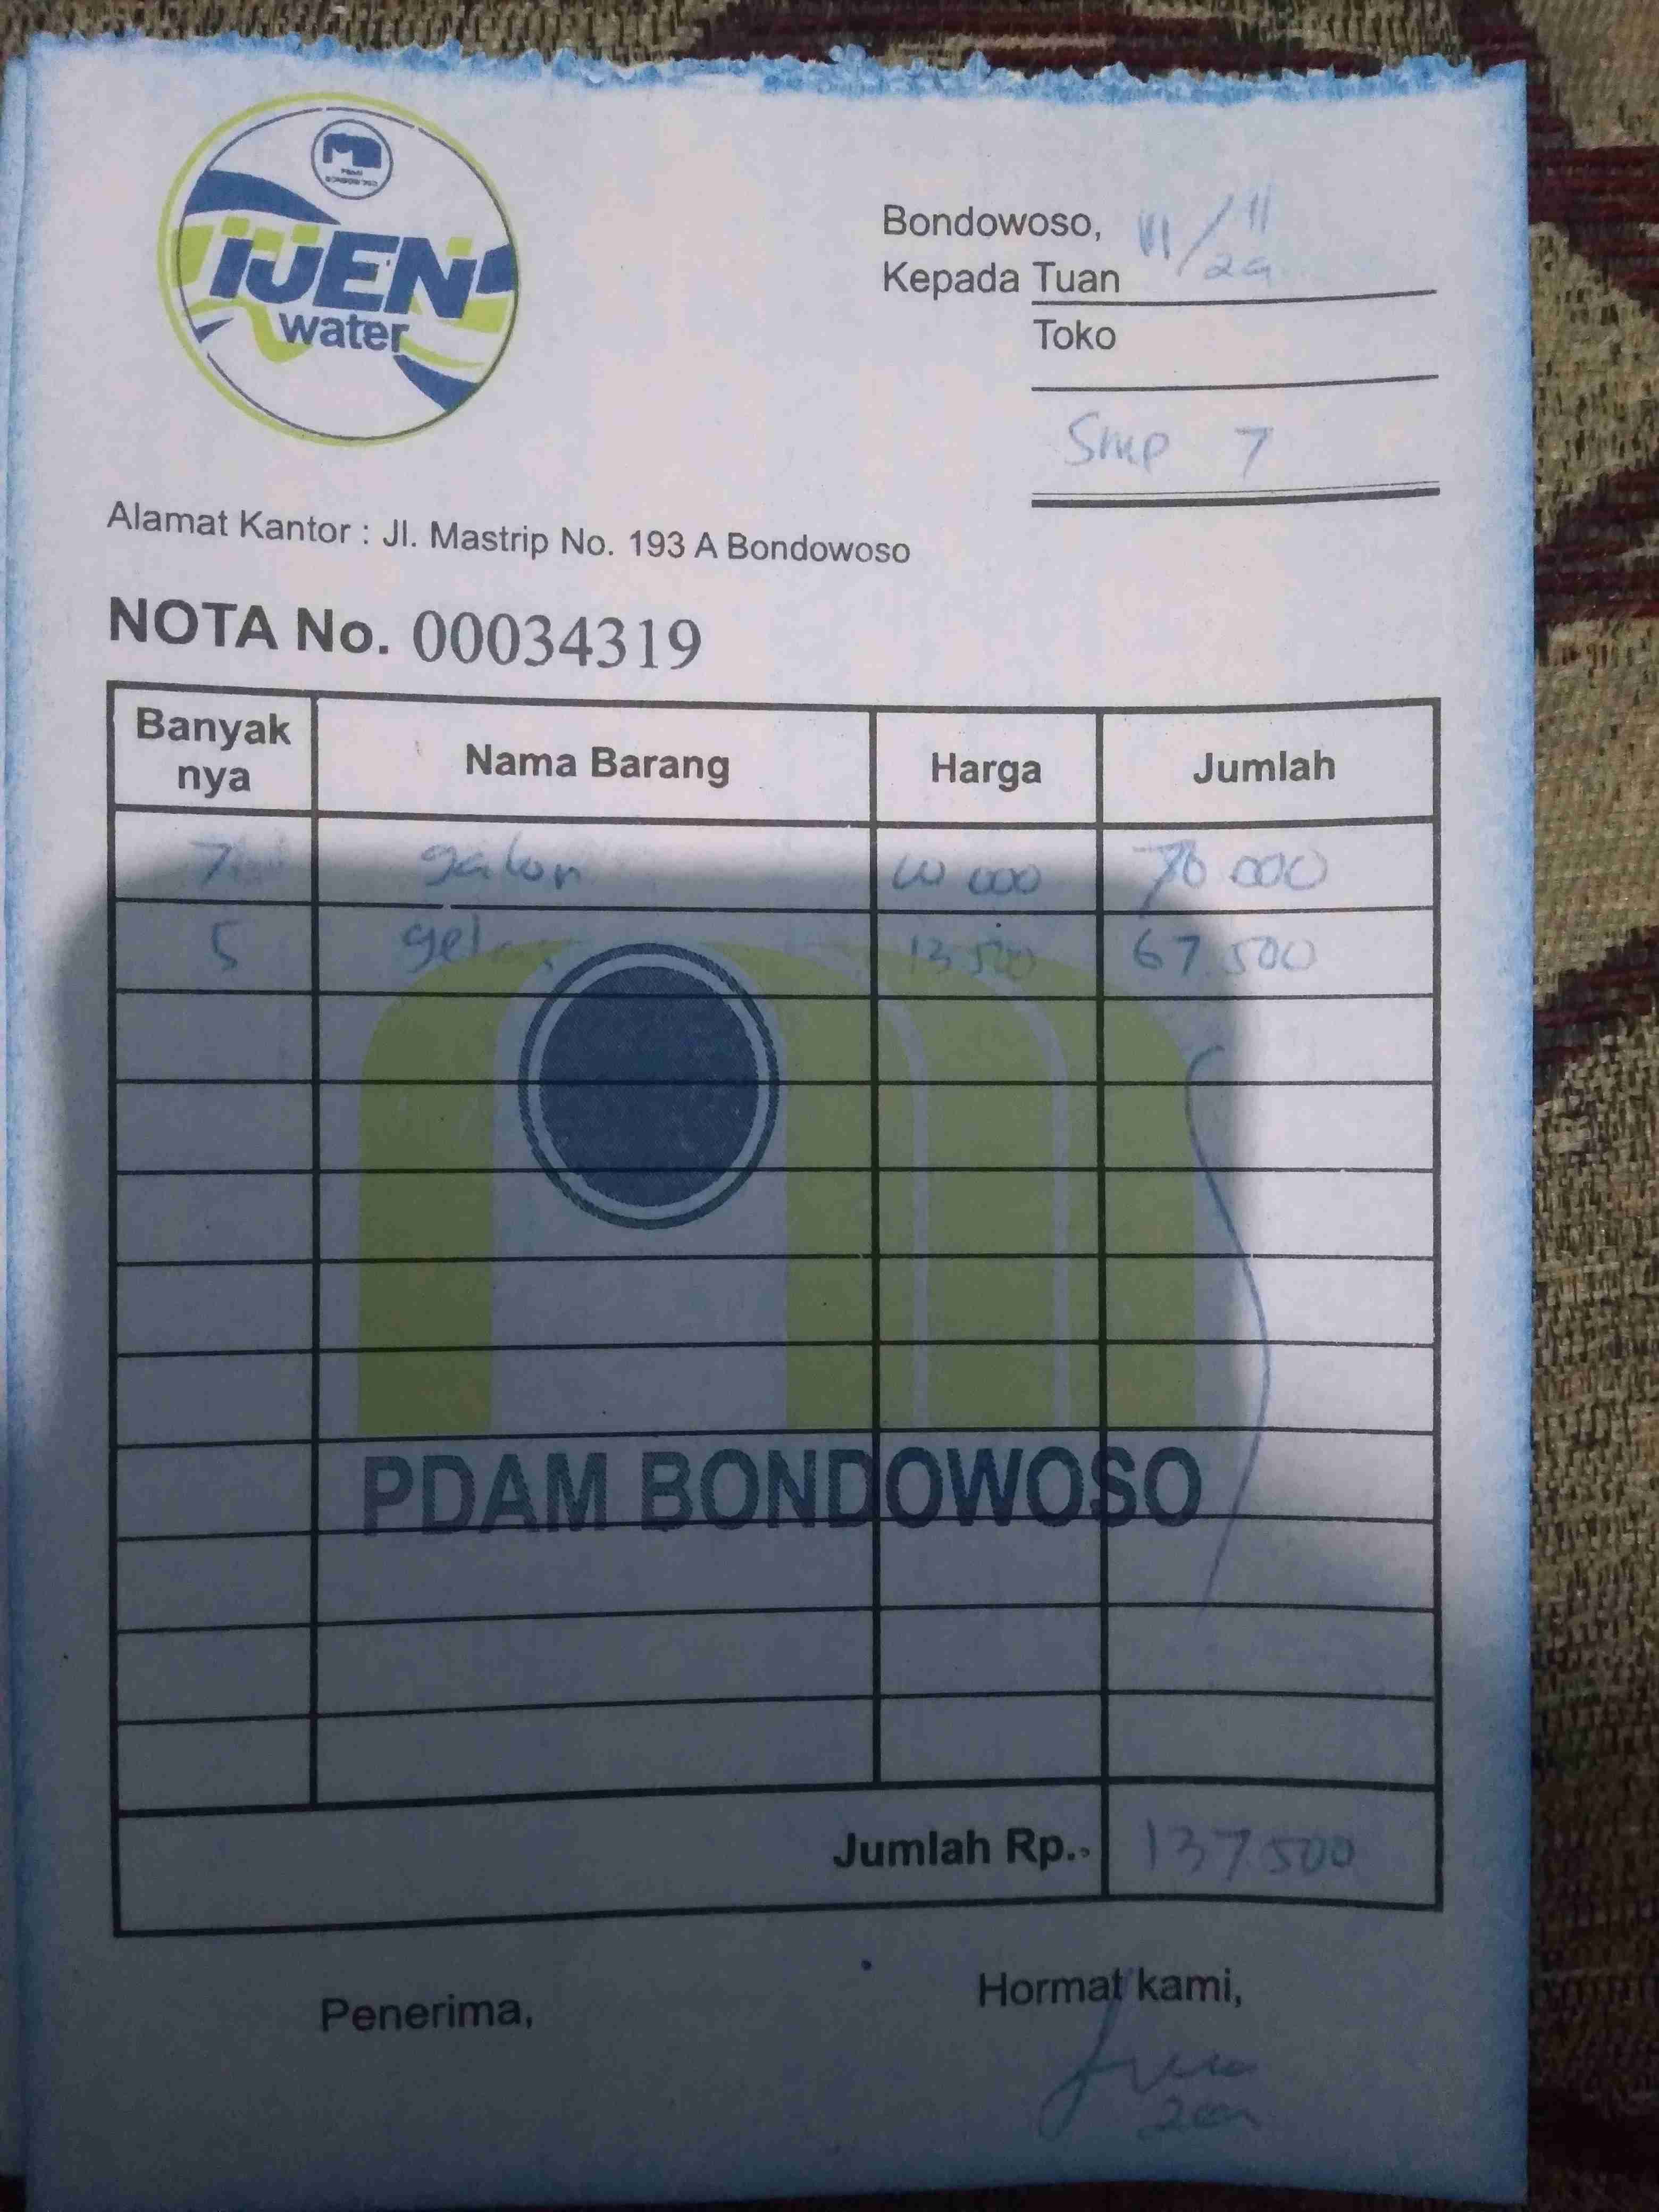 PDAM
BONDOWOSO
IJEN
water
Bondowoso, 11/11
24
Kepada Tuan
Toko
Smp 7
Alamat Kantor : Jl. Mastrip No. 193 A Bondowoso
NOTA No. 00034319
Banyak nya Nama Barang Harga Jumlah
7 galon 10 000 70 000
5 gelas 13 500 67.500
PDAM BONDOWOSO
Jumlah Rp. 137 500
Penerima, Hormat kami,